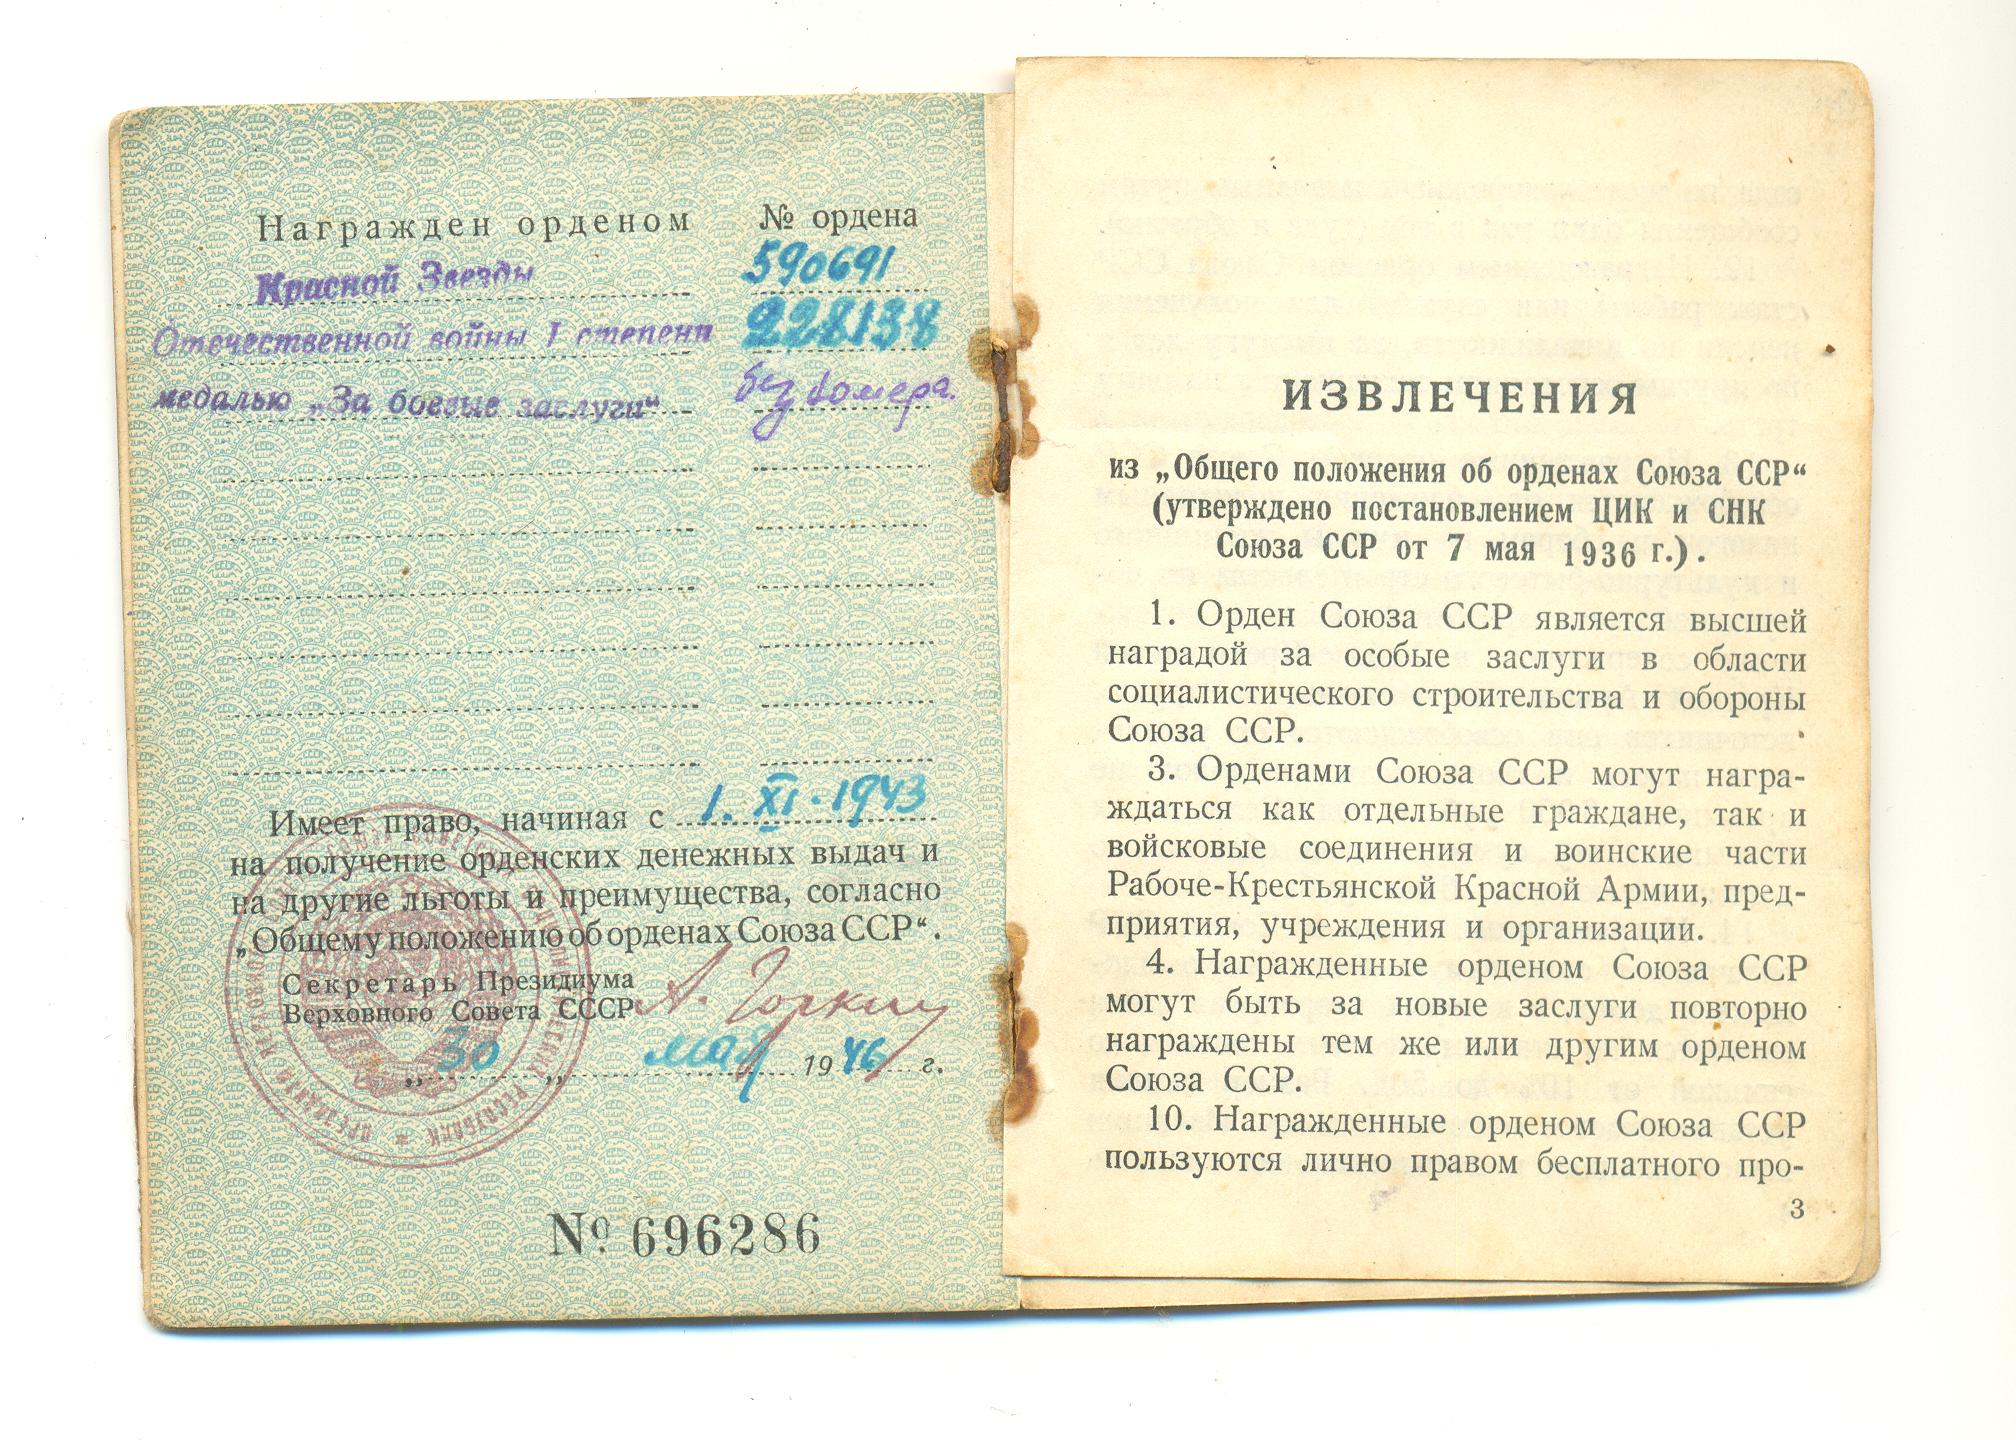 Награжден орденом № ордена
Красной Звезды 590691
Отечественной войны I степени 228138
медалью „За боевые заслуги“ без номера.
Имеет право, начиная с 1. XI. 1943
на получение орденских денежных выдач и
на другие льготы и преимущества, согласно
„Общему положению об орденах Союза ССР“.
Секретарь Президиума
Верховного Совета СССР А. Горкин
„30„ мая 1946 г.
№ 696286
ИЗВЛЕЧЕНИЯ
из „Общего положения об орденах Союза ССР“
(утверждено постановлением ЦИК и СНК
Союза ССР от 7 мая 1936 г.).
1. Орден Союза ССР является высшей
наградой за особые заслуги в области
социалистического строительства и обороны
Союза ССР.
3. Орденами Союза ССР могут награ-
ждаться как отдельные граждане, так и
войсковые соединения и воинские части
Рабоче-Крестьянской Красной Армии, пред-
приятия, учреждения и организации.
4. Награжденные орденом Союза ССР
могут быть за новые заслуги повторно
награждены тем же или другим орденом
Союза ССР.
10. Награжденные орденом Союза ССР
пользуются лично правом бесплатного про-
3